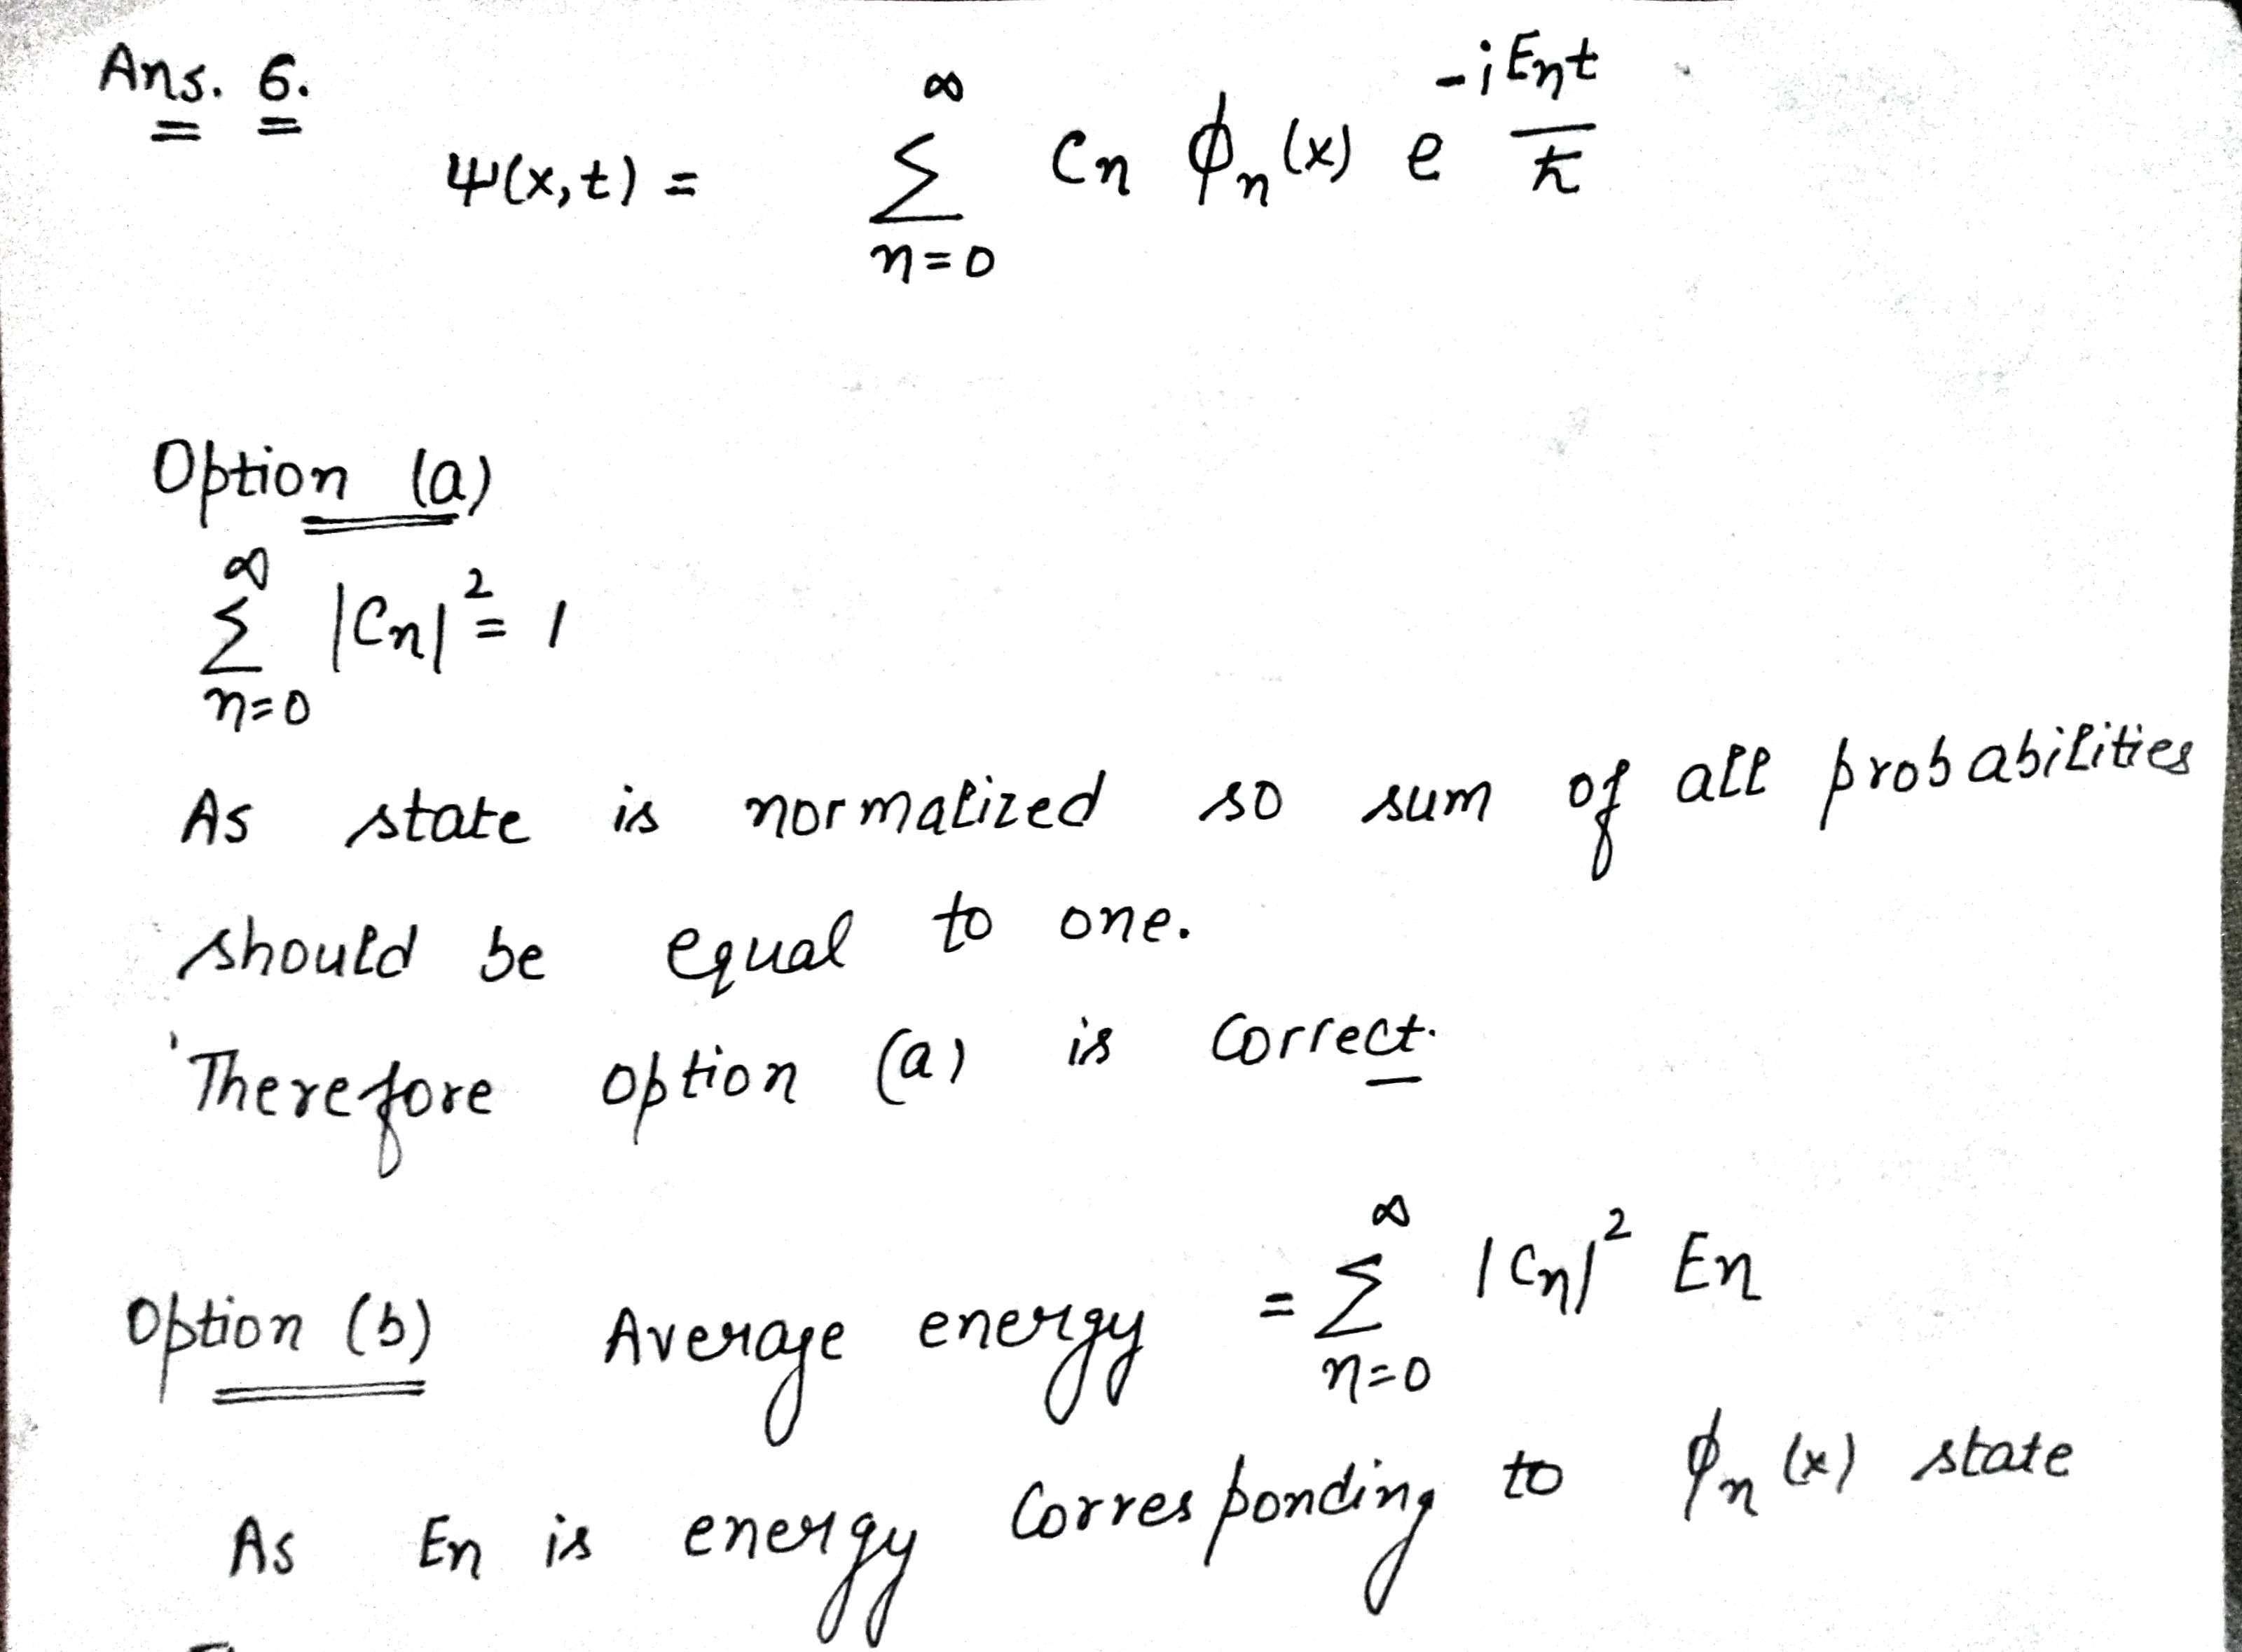 Ans. 6.
ψ(x,t) = ∞ Σ n=0 Cn ϕn(x) e^(-iEnt/ħ)
Option (a)
∞ Σ n=0 |Cn|² = 1
As state is normalized so sum of all probabilities
should be equal to one.
Therefore option (a) is correct.
Option (b) Average energy = ∞ Σ n=0 |Cn|² En
As En is energy corresponding to ϕn(x) state